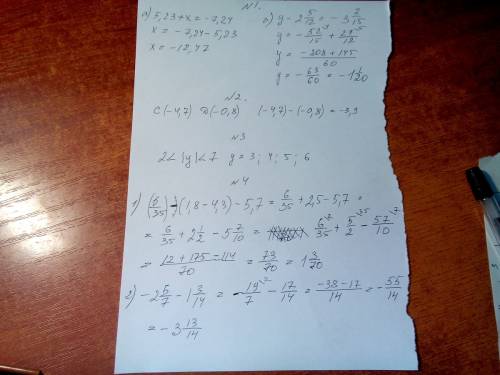 №1.
а) 5,23+x = -7,24
x = -7,24-5,23
x = -12,47
б) y - 2 5/12 = -3 2/15
y = -52/15 + 29/12
y = -208+145/60
y = -63/60 = -1 1/20
№2.
C(-4,7) D(-0,8) (-4,7)-(-0,8) = -3,9
№3
2<|y|<7 y = 3; 4; 5; 6
№4
1) (6/35) - (1,8-4,3) - 5,7 = 6/35 + 2,5 - 5,7 =
= 6/35 + 2 1/2 - 5 7/10 = 6/35 + 5/2 - 57/10
= 12+175-114/70 = 73/70 = 1 3/70
2) -2 5/7 - 1 3/14 = -19/7 - 17/14 = -38-17/14 = -55/14
= -3 13/14